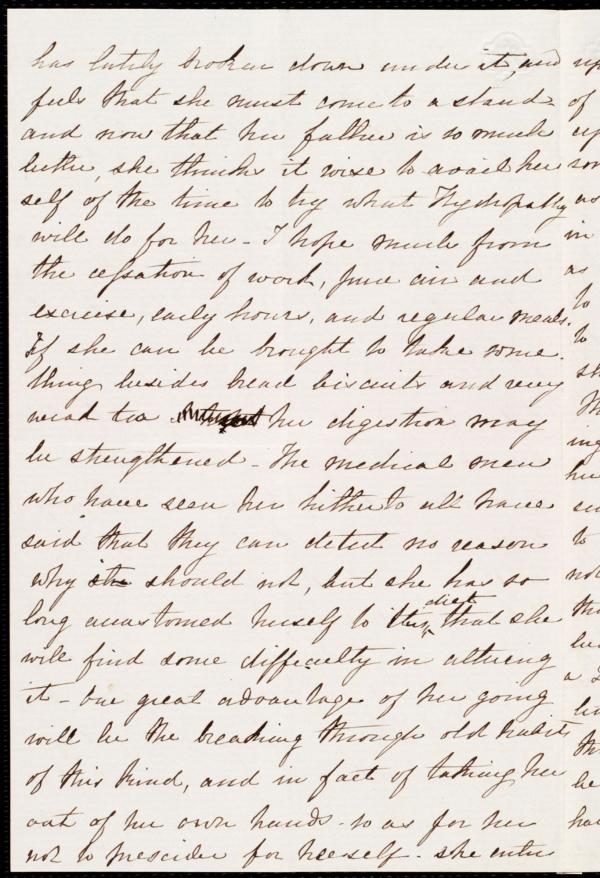 has lately broken down under it, and
feels that she must come to a stand
and now that her father is so much
better, she thinks it wise to avail her
self of the time to try what Hydropathy
will do for her - I hope much from
the cessation of work, pure air and
exercise, early hours, and regular meals.
If she can be brought to take some
thing besides bread biscuits and very
weak tea her digestion may
be strengthened - The medical men
who have seen her hitherto all have
said that they can detect no reason
why she should not, but she has so
long accustomed herself to this diet that she
will find some difficulty in altering
it - One great advantage of her going
will be the breaking through old habits
of this kind, and in fact of taking her
out of her own hands - so as for her
not to prescribe for herself - she enters